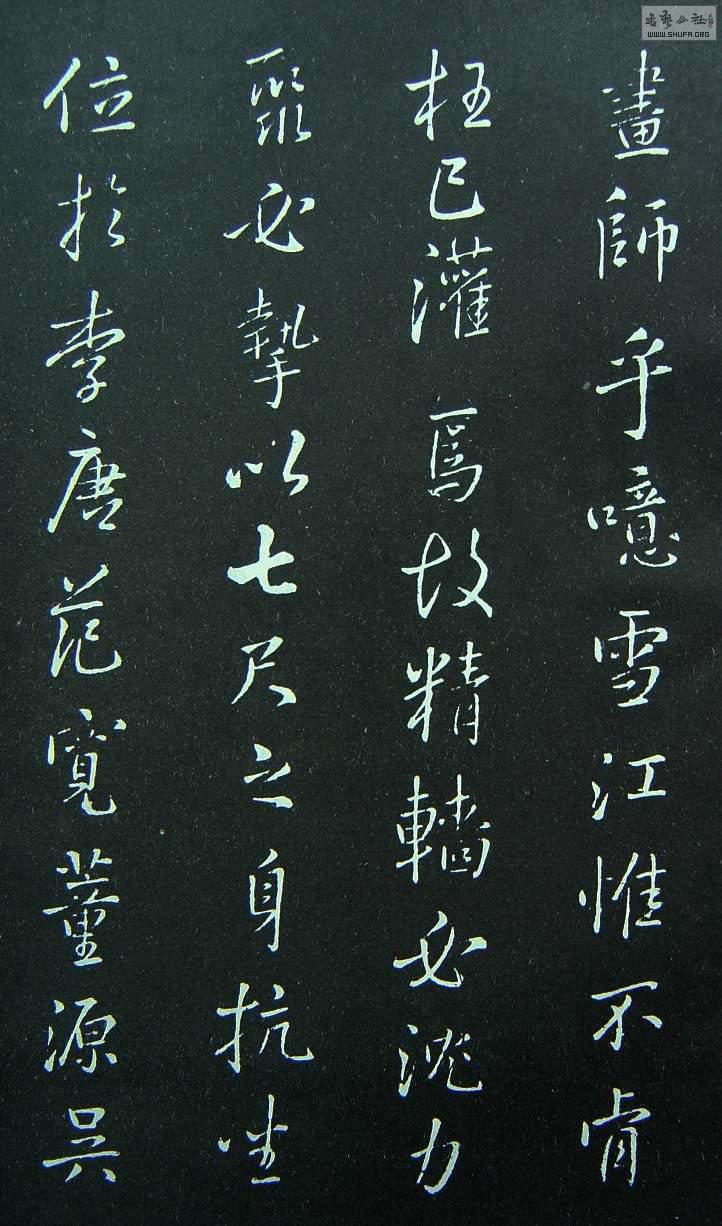 畫師乎噫雪江惟不肯
枉己灌焉故精轖必沈力
聚必摯以七尺之身抗坐
位於李唐范寬董源吳
書藝公社
WWW.SHUFA.ORG